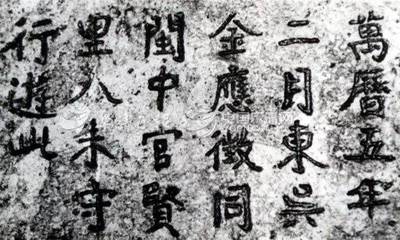 萬曆五年
二月東吳
金應徵同
閩中官賢
里人朱守
行遊此